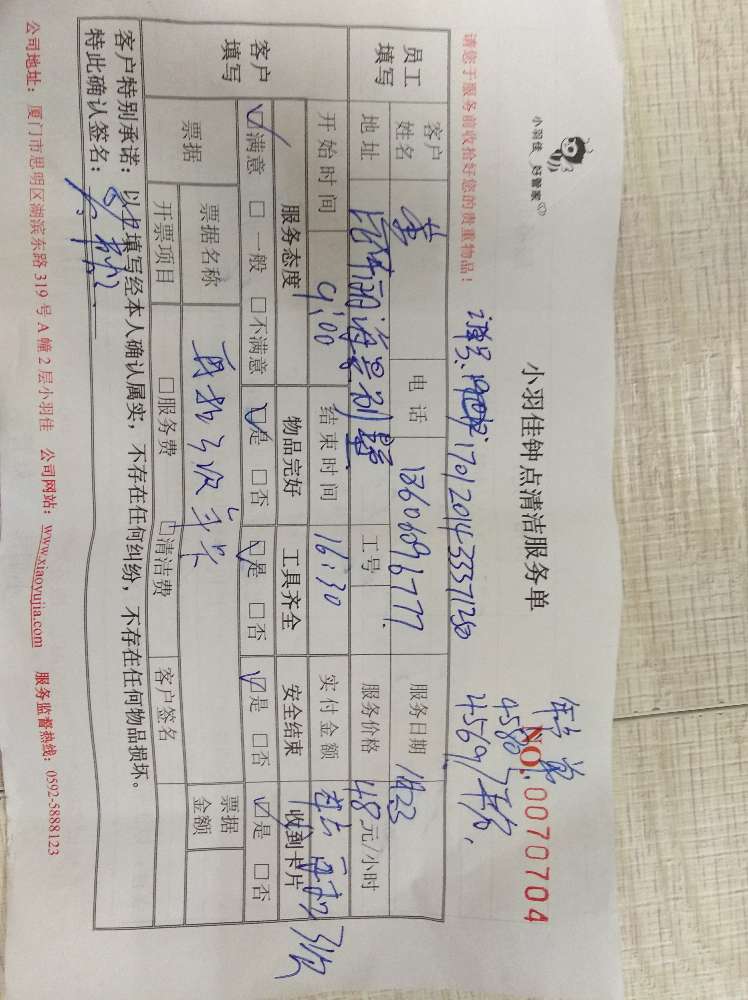 小羽佳 好管家
小羽佳钟点清洁服务单
NO. 0070704
4569
请您于服务前收拾好您的贵重物品!
1701201433371250
员工填写
客户姓名 黄 电话 13606096777 服务日期
地址 海景别墅 工号 服务价格 48元/小时
开始时间 9:00 结束时间 16:30 实付金额
客户填写
服务态度 物品完好 工具齐全 安全结束 收到卡片
☑满意 □一般 □不满意 ☑是 □否 ☑是 □否 ☑是 □否 ☑是 □否
票据
票据名称 票据金额
开票项目 □服务费 □清洁费 客户签名
客户特别承诺:以上填写经本人确认属实,不存在任何纠纷,不存在任何物品损坏。
特此确认签名:
公司地址:厦门市思明区湖滨东路319号A幢2层小羽佳 公司网站:www.xiaoyujia.com 服务监督热线:0592-5888123